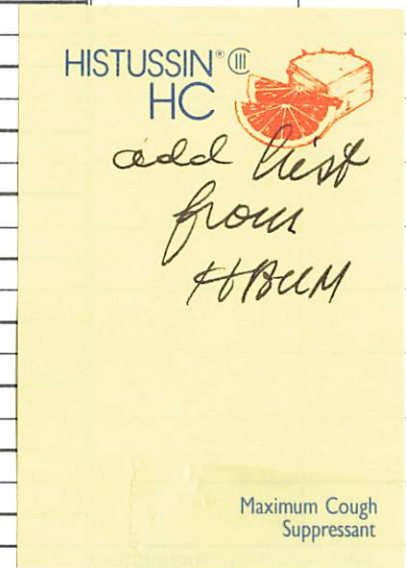 HISTUSSIN® CIII
HC
add hist
from
HBUM
Maximum Cough
Suppressant